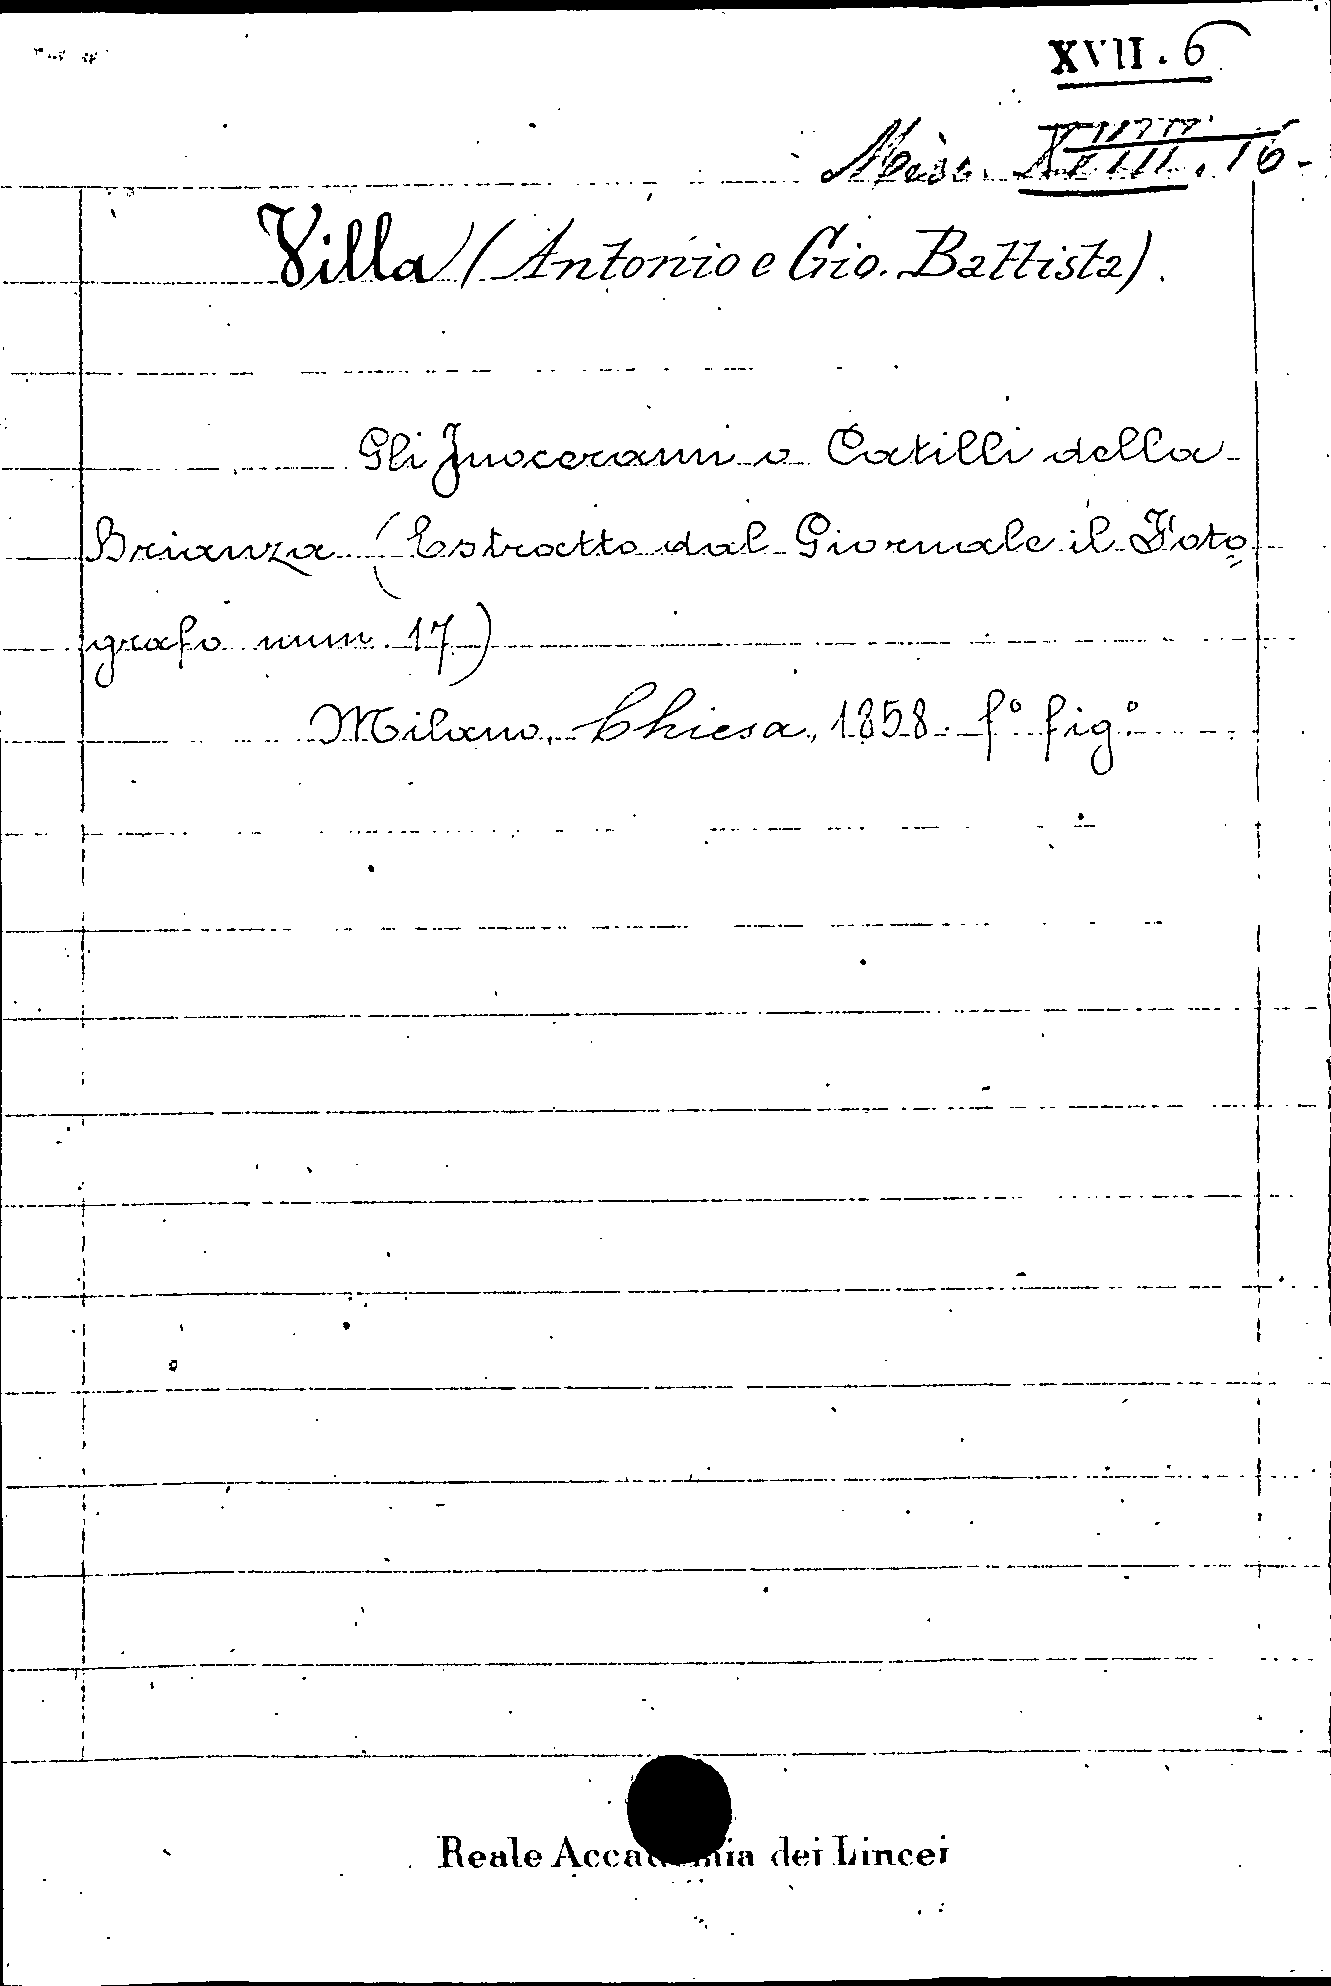 XVII. 6
Misc. XVIII. 16.
Villa (Antonio e Gio. Battista).
Gli Inocerami o Catilli della
Brianza (Estratto dal Giornale il Foto
grafo num. 17)
Milano, Chiesa, 1858. f° fig°
Reale Accademia dei Lincei